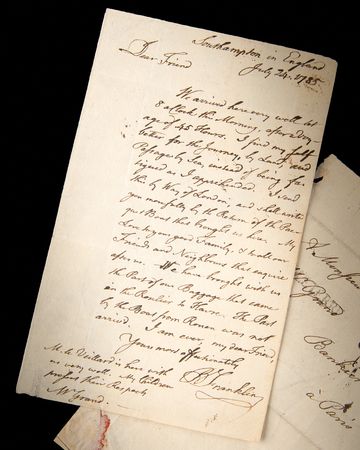 Southampton in England
July 24. 1785
Dear Friend
We arrived here very well at
8 a Clock this Morning, after a Pas-
sage of 45 Hours. I find my self
better for the Journey, by Land and
Passage by Sea, instead of being fa-
tigued as I apprehended. I send
this by Way of London; and shall write
you more fully by the Return of the Pac-
quet Boat that brought us here. My
Love to your good Family, & to all our
Friends and Neighbours that enquire
after us. We have brought with us
the Part of our Baggage that came
in the Bendin to Havre. The Part
by the Boat from Rouen was not
arrived. I am ever, my dear Friend,
Yours most affectionately
B Franklin
M. le Veillard is here with
us very well. My Children
present their Respects
Mr Grand.
A Monsieur
Monsr Grand
Banker
à Paris